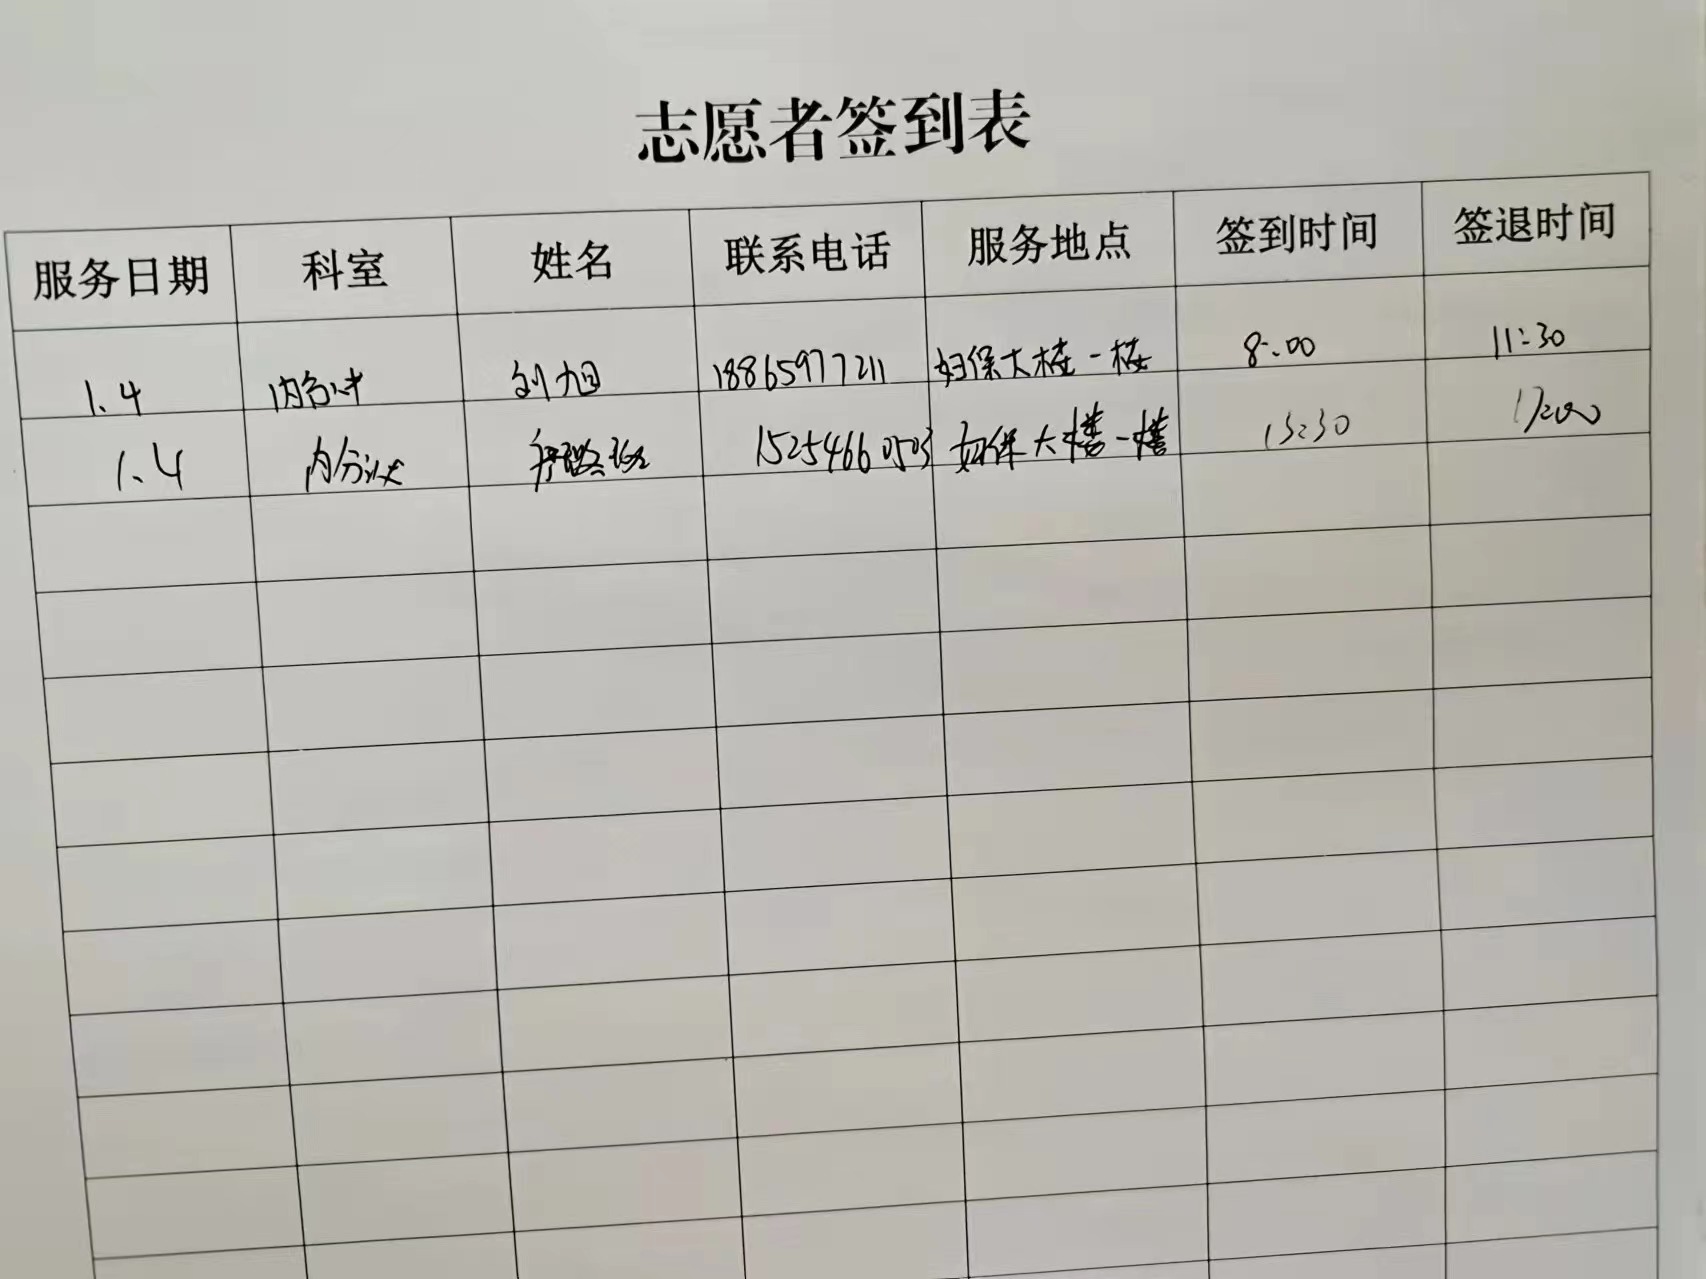 志愿者签到表
服务日期 科室 姓名 联系电话 服务地点 签到时间 签退时间
1.4 内分泌 刘旭 18865977211 妇保大楼一楼 8:00 11:30
1.4 内分泌 15254660503 妇保大楼一楼 13:30 17:00